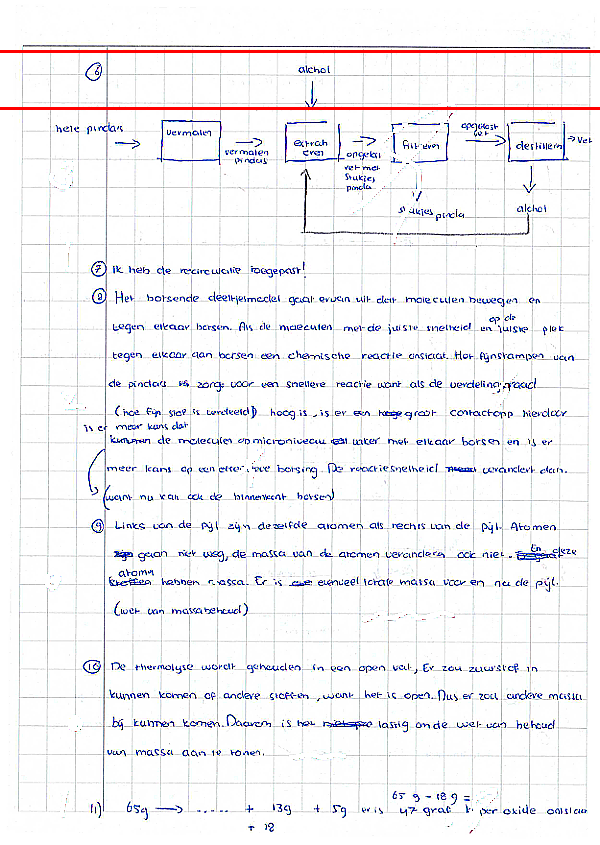 6 alchol
hele pinda's vermalen vermalen pindas extraheren filtreren opgelost vet destilleren → Vet
stukjes pinda
stukjes pinda alchol
7 Ik heb de recirculatie toegepast!
8 Het botsende deeltjesmodel gaat ervan uit dat moleculen bewegen en
op de
tegen elkaar botsen. Als de moleculen met de juiste snelheid en juiste plek
tegen elkaar aan botsen een chemische reactie ontstaat. Het fijnstampen van
de pinda's zorgt voor een snellere reactie want als de verdelingsgraad
(hoe fijn stof is verdeeld) hoog is, is er een groot contactopp hierdoor
is er meer kans dat
de moleculen op microniveau vaker met elkaar botsen en is er
meer kans op een effectieve botsing. De reactiesnelheid verandert dan.
(want nu kan ook de binnenkant botsen)
9 Links van de pijl zijn dezelfde atomen als rechts van de pijl. Atomen
gaan niet weg, de massa van de atomen veranderen ook niet. En deze
atomen
hebben massa. Er is evenveel totale massa voor en na de pijl.
(wet van massabehoud)
10 De thermolyse wordt gehouden in een open vat, Er zou zuurstof in
kunnen komen of andere stoffen, want het is open. Dus er zou andere massa
bij kunnen komen. Daarom is het lastig om de wet van behoud
van massa aan te tonen.
65 g - 18 g =
11) 65g → ..... + 13g + 5g er is 47 gram per oxide ontstaan
+ 18